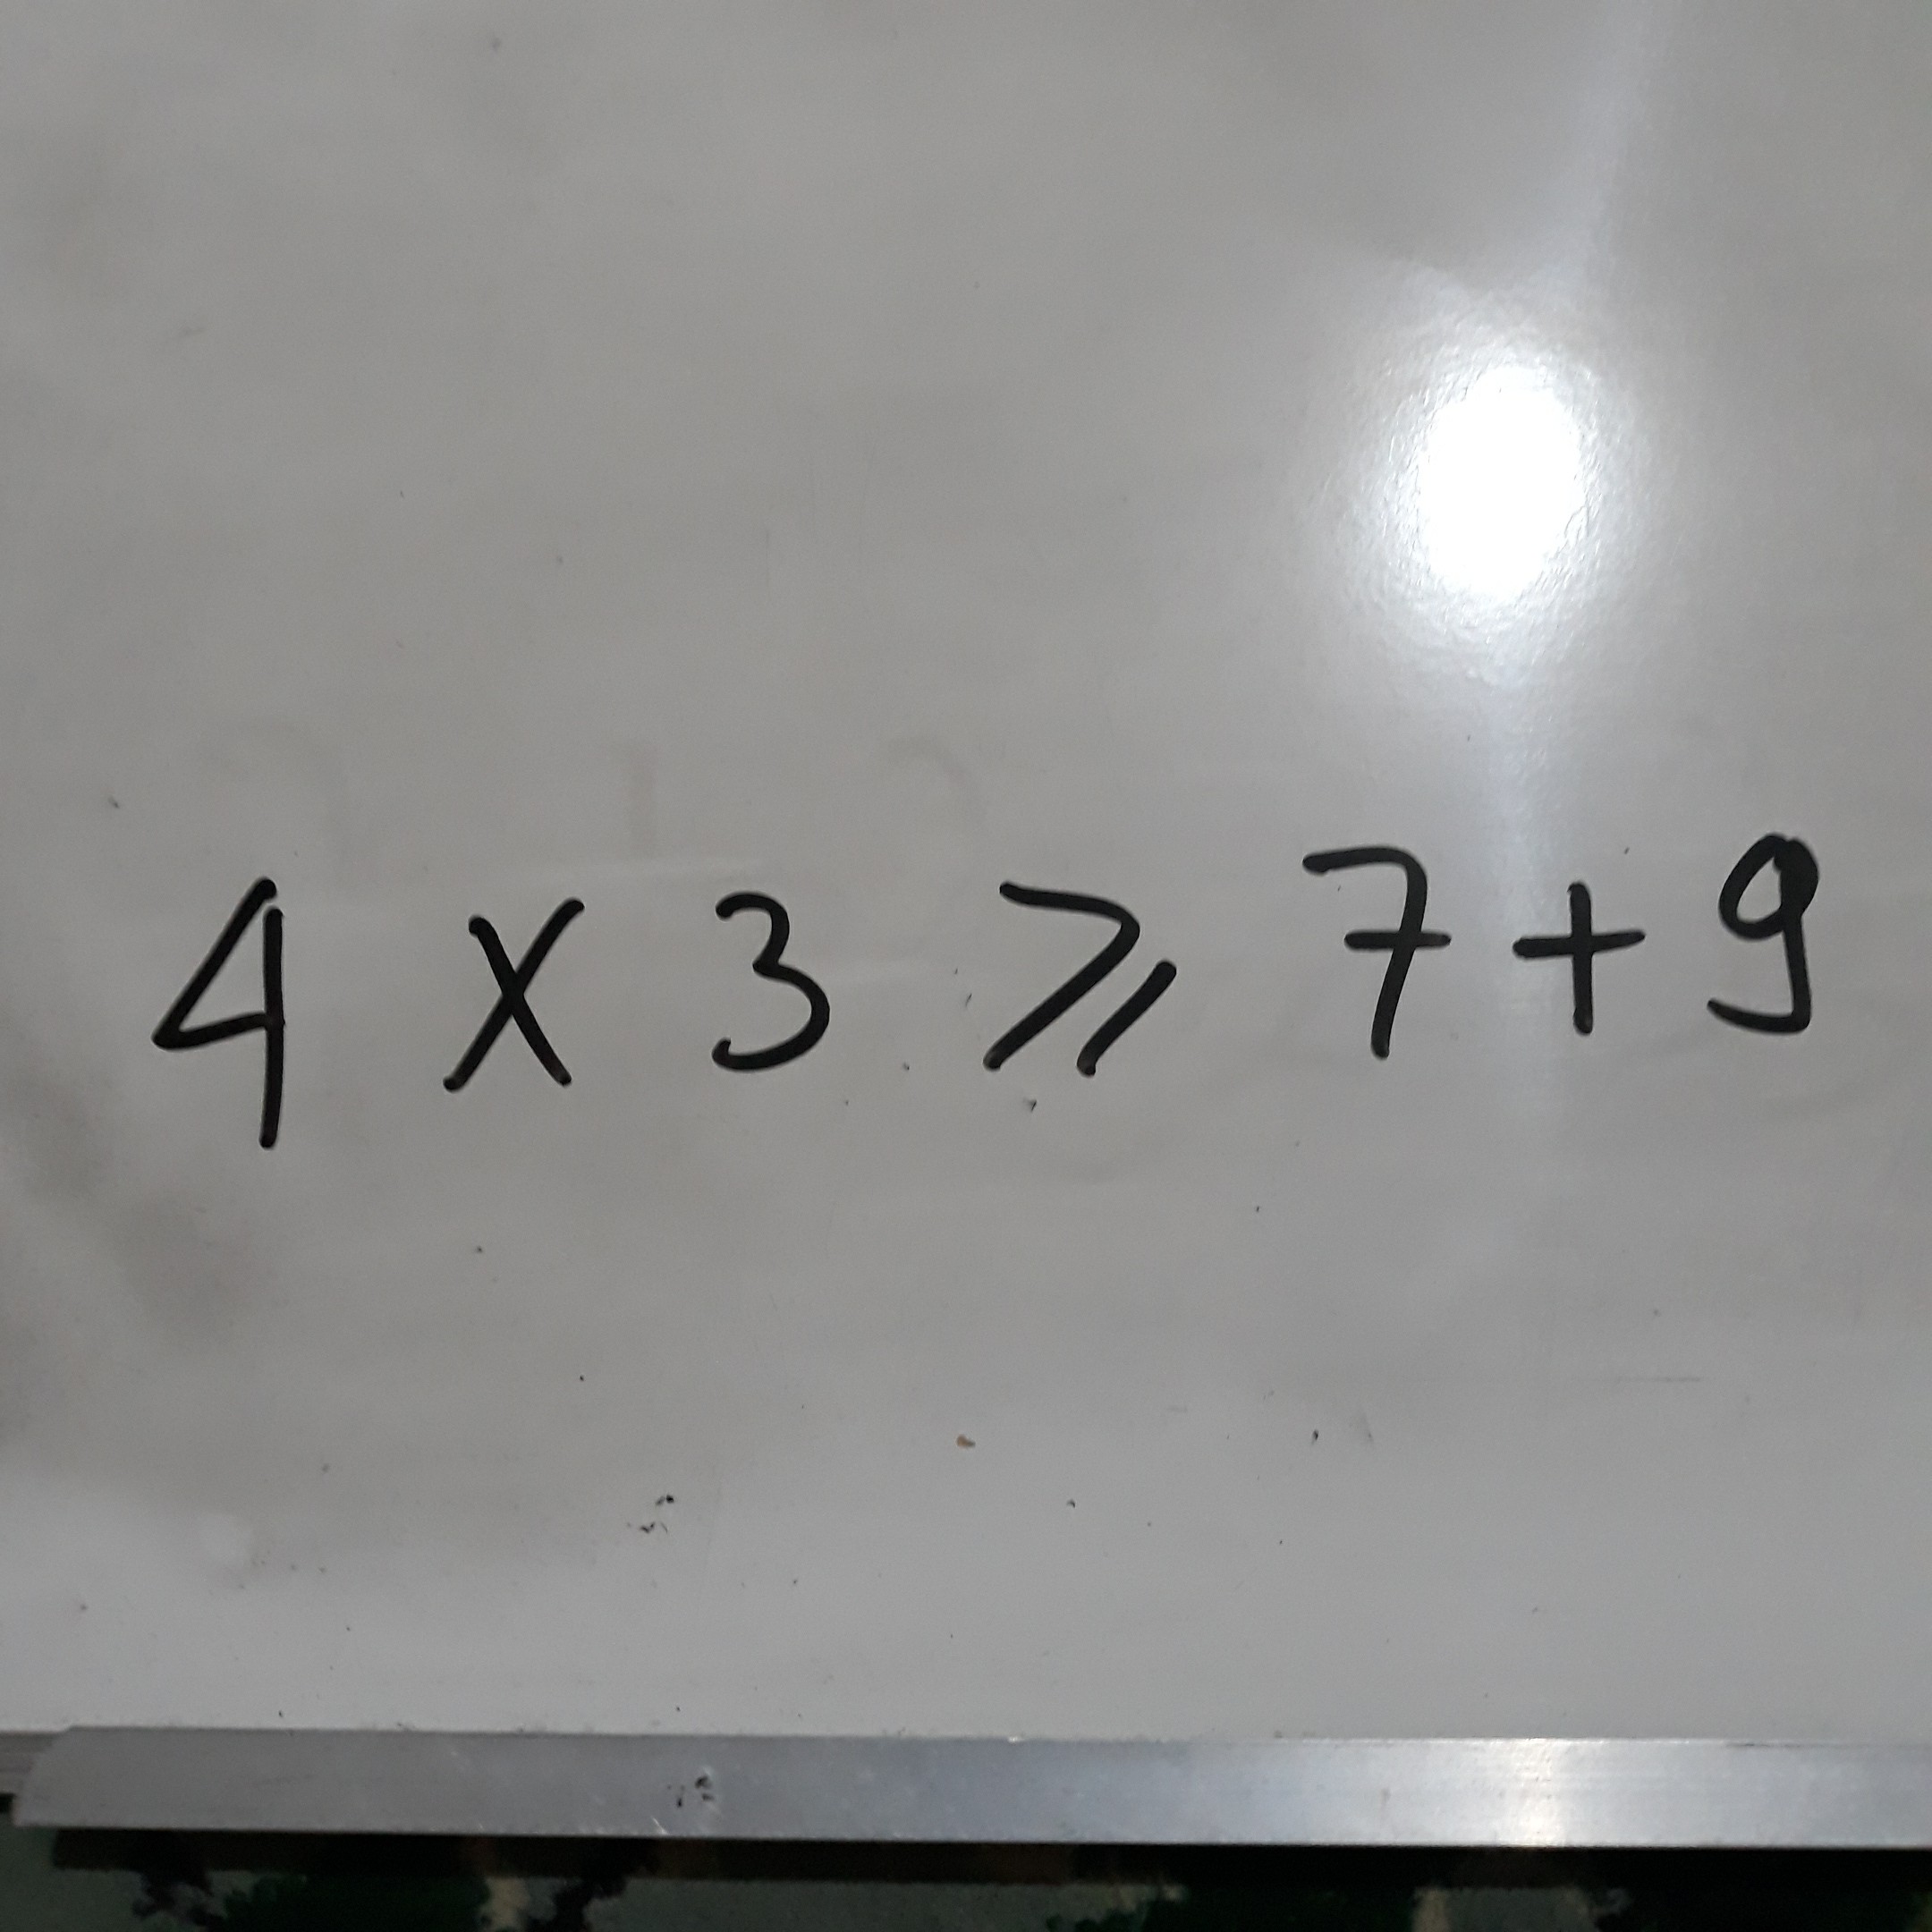 4 × 3 ⩾ 7 + 9